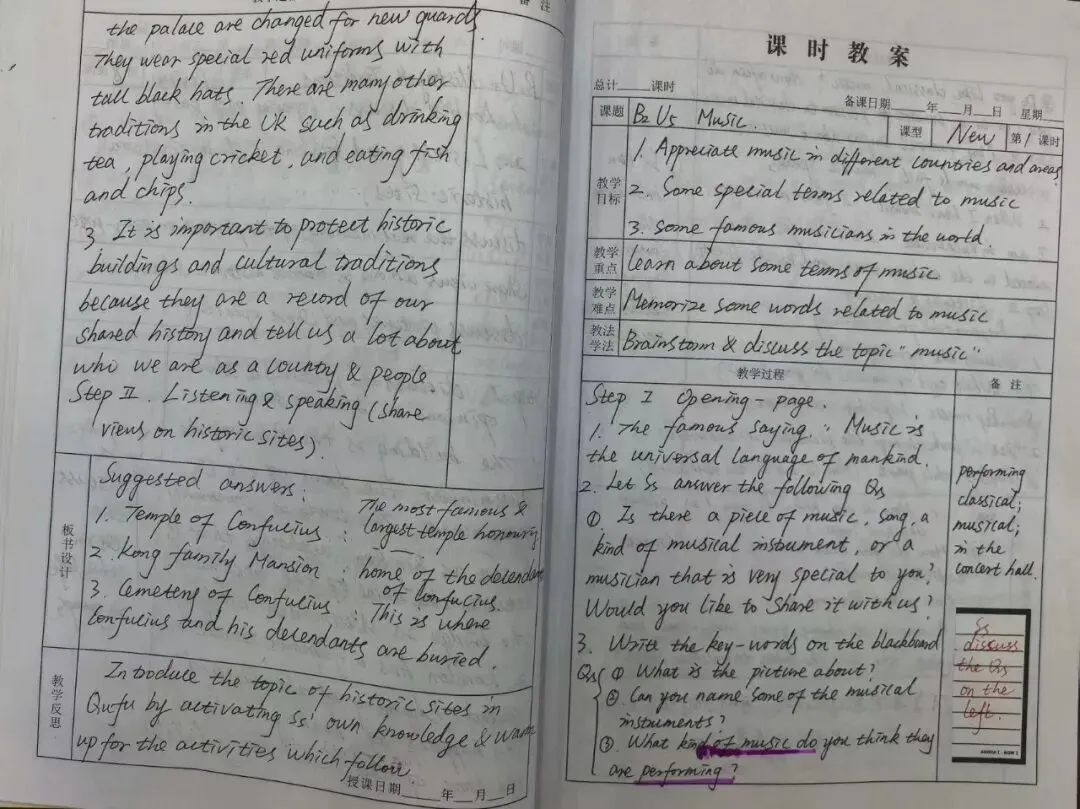 备 注
the palace are changed for new guards.
They wear special red uniforms with
tall black hats. There are many other
traditions in the UK such as drinking
tea, playing cricket, and eating fish
and chips.
3. It is important to protect historic
buildings and cultural traditions
because they are a record of our
shared history and tell us a lot about
who we are as a country & people.
Step II. Listening & speaking (share
views on historic sites).
板书设计
Suggested answers:
1. Temple of Confucius : The most famous &
largest temple honouring
2. Kong family Mansion : home of the decendants
of confucius.
3. Cemetery of Confucius : This is where
Confucius and his decendants are buried.
教学反思
Introduce the topic of historic sites in
Qufu by activating Ss' own knowledge & warm
up for the activities which follow.
授课日期 年 月 日
课 时 教 案
总计 课时
备课日期 年 月 日 星期
课题 B2 U5 Music. 课型 New 第1课时
教学目标
1. Appreciate music in different countries and areas
2. Some special terms related to music
3. Some famous musicians in the world.
教学重点 Learn about some terms of music
教学难点 Memorize some words related to music
教法学法 Brainstorm & discuss the topic "music"
教学过程 备 注
Step I Opening-page.
1. The famous saying: Music is
the universal language of mankind.
2. Let Ss answer the following Qs
① Is there a piece of music, song, a
kind of musical instument, or a
musician that is very special to you?
Would you like to share it with us?
3. Write the key-words on the blackboard
Qs ① What is the picture about?
② Can you name some of the musical
instuments?
③ What kind of music do you think they
are performing?
performing
classical;
musical;
in the
concert hall.
Ss
discuss
the Qs
on the
left.